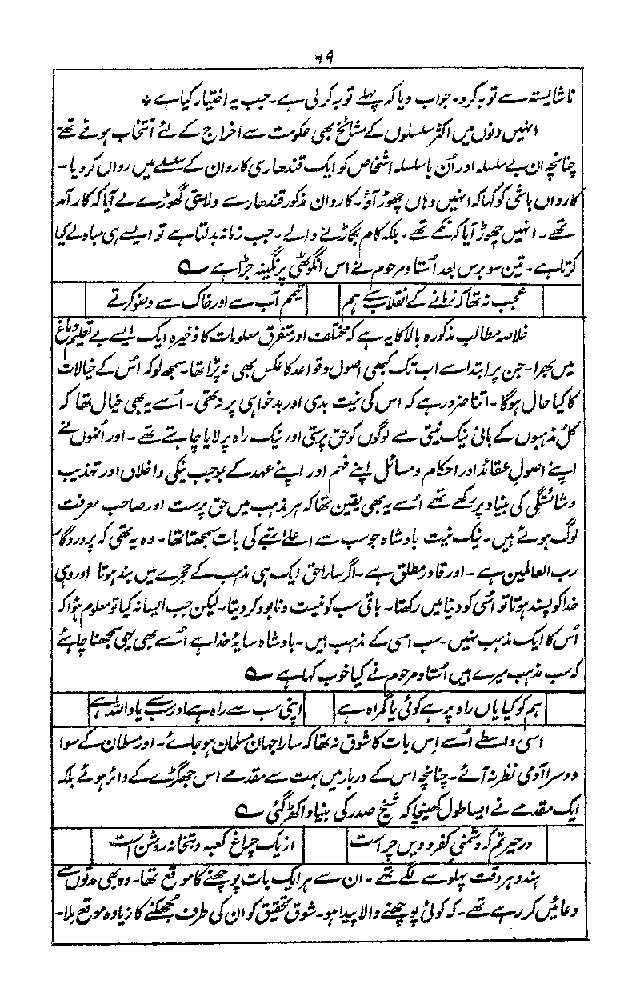 ۷۹
ناشایستہ سے توبہ کرو۔ جواب دیا کہ پہلے توبہ کر لی ہے۔ جب یہ اختیار کیا ہے *
انہیں دنوں میں اکثر سلسلوں کے مشائخ بھی حکومت سے اخراج کے لئے انتخاب ہوئے تھے
چنانچہ ان بے سلسلہ اور اُن باسلسلہ اشخاص کو ایک قندھاری کاروان کے سلسلے میں رواں کر دیا۔
کارواں باشی کو کہا کہ انہیں وہاں چھوڑ آؤ۔ کاروان مذکور قندھار سے ولایتی گھوڑے لے آیا کہ کارآمد
تھے۔ انہیں چھوڑ آیا کہ نکمے تھے۔ بلکہ کام بگاڑنے والے۔ جب زمانہ بدلتا ہے تو ایسے ہی مبادلے کیا
کرتا ہے۔ تین سو برس بعد اُستاد مرحوم نے اس انگوٹھی پر نگینہ جڑا ہے ؎
عجب نہ تھا کہ زمانے کے انقلاب سے ہم تیمم آب سے اور خاک سے وضو کرتے
خلاصہ مطالب مذکورہ بالا کا یہ ہے کہ مختلف اور متفرق معلومات کا ذخیرہ ایک ایسے بے تعلیم دماغ
میں بھرا۔ جن پر ابتدا سے اب تک کبھی اصول و قواعد کا عکس بھی نہ پڑا تھا۔ سمجھ لو کہ اُس کے خیالات
کا کیا حال ہوگا۔ اتنا ضرور ہے کہ اس کی نیت بدی اور بدخواہی پر نہ تھی۔ اُسے یہ بھی خیال تھا کہ
کل مذہبوں کے بانی نیک نیتی سے لوگوں کو حق پرستی اور نیک راہ پر لایا چاہتے تھے۔ اور اُنہوں نے
اپنے اصول عقائد اور احکام و مسائل اپنے فہم اور اپنے عہد کے بموجب نیکی و اخلاق اور تہذیب
و شائستگی کی بنیاد پر رکھے تھے اُسے یہ بھی یقین تھا کہ ہر مذہب میں حق پرست اور صاحب معرفت
لوگ ہوتے ہیں۔ نیک نیت بادشاہ جو سب سے اعلےٰ رتبے کی بات سمجھتا تھا۔ وہ یہ تھی کہ پروردگار
رب العالمین ہے۔ اور قادر مطلق ہے۔ اگر سارا حق ایک ہی مذہب کے حجرے میں بند ہوتا اور وہی
خدا کو پسند ہوتا تو اُسی کو دنیا میں رکھتا۔ باقی سب کو نیست و نابود کر دیتا۔ لیکن جب ایسا نہ کیا تو معلوم ہوا کہ
اُس کا ایک مذہب نہیں۔ سب اسی کے مذہب ہیں۔ بادشاہ سایۂ خدا ہے اُسے بھی یہی سمجھنا چاہئے
کہ سب مذہب میرے ہیں اُستاد مرحوم نے کیا خوب کہا ہے ؎
ہم کو کیا یاں راہ پر ہے کوئی یا گمراہ ہے اپنی سب سے راہ ہے اور سب سے یاد اللہ ہے
اسی واسطے اُسے اِس بات کا شوق نہ تھا کہ سارا جہان مسلمان ہو جائے۔ اور مسلمان کے سوا
دوسرا آدمی نظر نہ آئے۔ چنانچہ اس کے دربار میں بہت سے مقدمے اس جھگڑے کے دائر ہوئے بلکہ
ایک مقدمے نے ایسا طول کھینچا کہ شیخ صدر کی بنیاد اکھڑ گئی ؎
در حیرتم کہ دشمنی کفر و دیں چراست از یک چراغ کعبہ و بتخانہ روشن است
ہندو ہر وقت پہلو سے لگے تھے۔ ان سے ہر ایک بات پوچھنے کا موقع تھا۔ وہ بھی مدتوں سے
دعائیں کر رہے تھے۔ کہ کوئی پوچھنے والا پیدا ہو۔ شوق تحقیق کو ان کی طرف جھکنے کا زیادہ موقع ملا۔